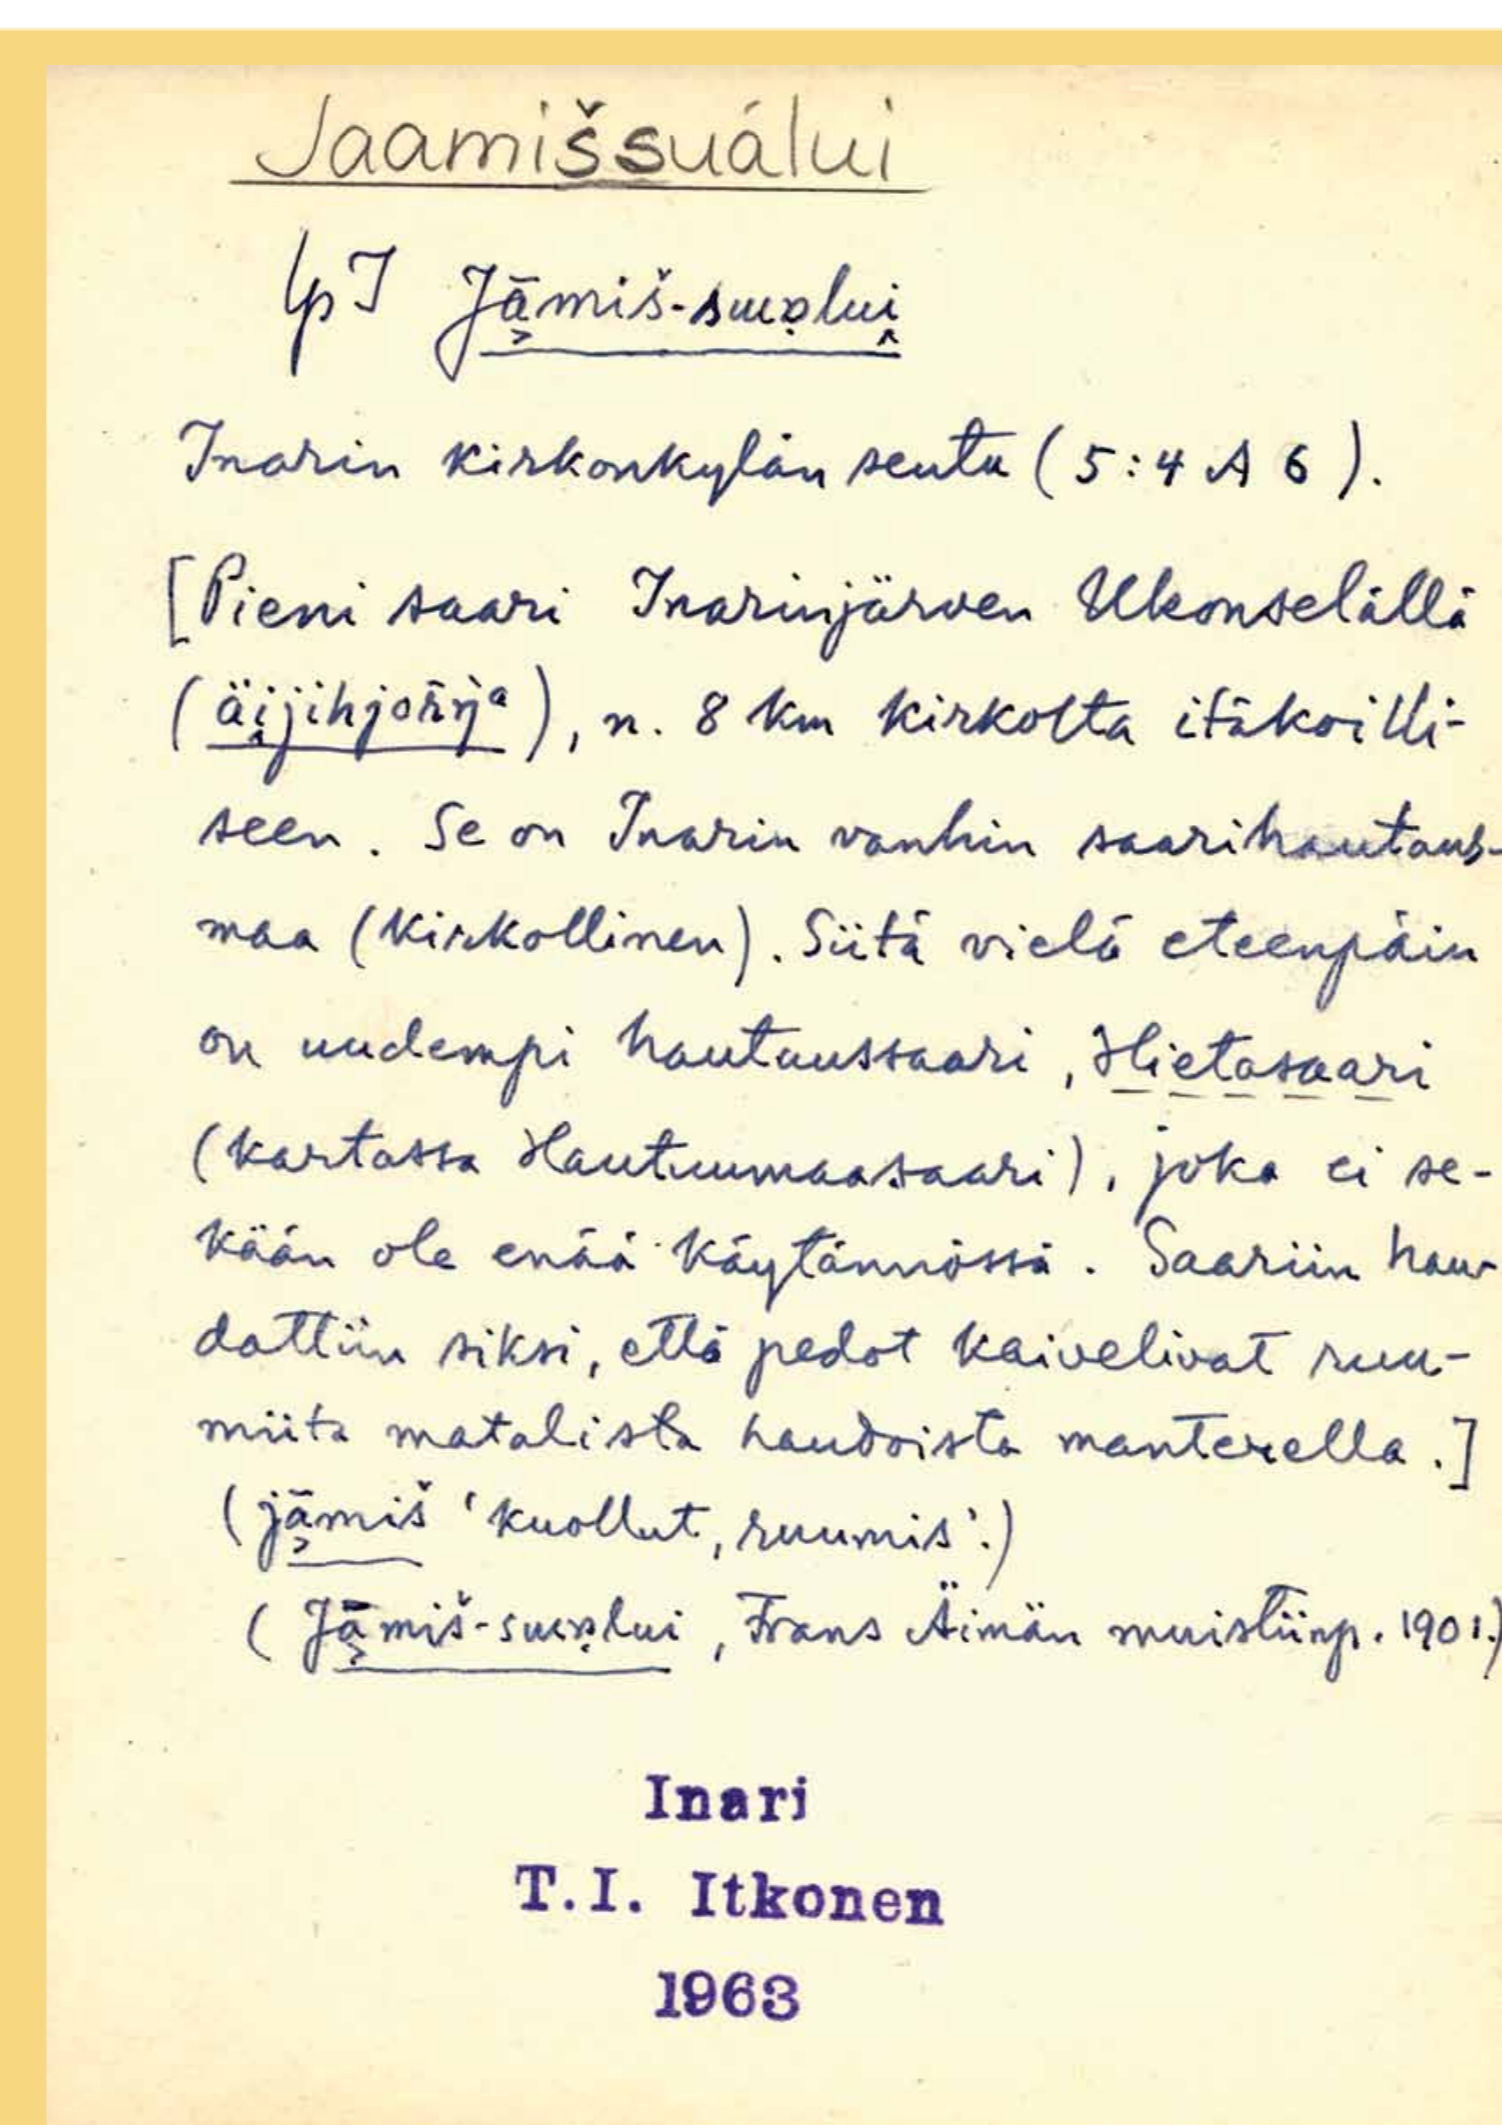 Jaamiššuálui
lpI Jāmiš-suₔlui
Inarin kirkonkylän seutu (5:4 A 6).
[Pieni saari Inarinjärven Ukonselällä
(äijihjorŋa), n. 8 km kirkolta itäkoilli-
seen. Se on Inarin vanhin saarihautaus-
maa (kirkollinen). Siitä vielä eteenpäin
on uudempi hautuussaari, Hietasaari
(kartassa Hautuumaasaari), joka ei se-
kään ole enää käytännössä. Saariin hau-
dattiin siksi, että pedot kaivelivat ruu-
miita matalista haudoista manterella.]
(jāmiš 'kuollut, ruumis'.)
(Jāmiš-suₔlui, Frans Äimän muistiinp. 1901.)
Inari
T.I. Itkonen
1963